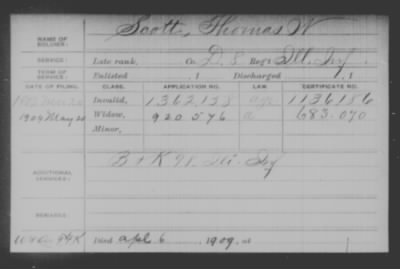 NAME OF SOLDIER: Scott, Thomas W
SERVICE: Late rank, Co. D, 8 Reg't Ill. Inf.
TERM OF SERVICE: Enlisted , 1 Discharged , 1
DATE OF FILING. CLASS. APPLICATION NO. LAW. CERTIFICATE NO.
Invalid, 1.362.158 1136156
1909 May 20 Widow, 920.576 683.070
Minor,
ADDITIONAL SERVICES: B & K 91. Ill. Inf
REMARKS:
Died apl 6 , 1909, at